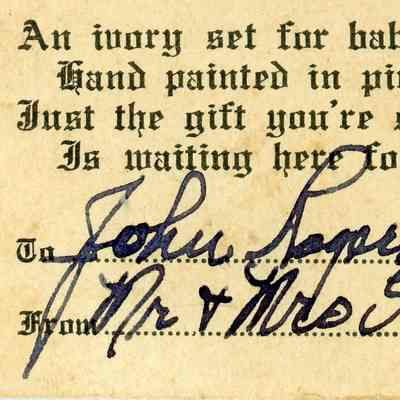 An ivory set for bab
Hand painted in pi
Just the gift you're
Is waiting here fo
To John Roge
From Mr + Mrs